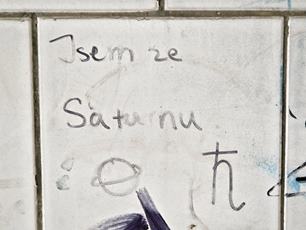 Jsem ze
Saturnu
ħ